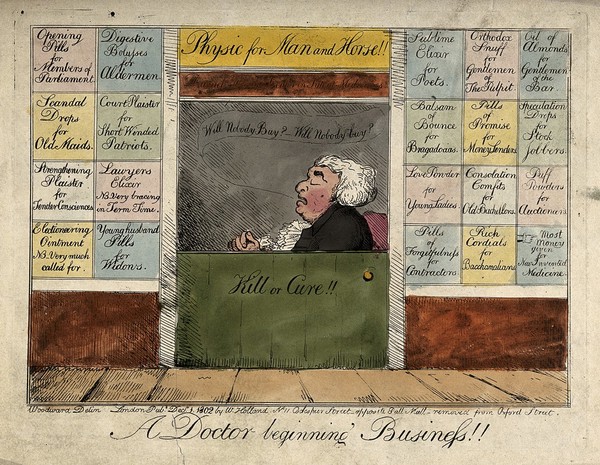 Opening
Pills
for
Members of
Parliament.
Digestive
Bolusses
for
Aldermen.
Scandal
Drops
for
Old Maids.
Court Plaister
for
Short Winded
Patriots.
Strengthening
Plaister
for
Tender Consciences
Lawyers
Elixir
NB. Very bracing
in Term Time.
Electioneering
Ointment
NB. Very much
called for.
Young husband
Pills
for
Widows.
Physic for Man and Horse!!
Will Nobody Buy? Will Nobody buy?
Kill or Cure!!
Sublime
Elixir
for
Poets.
Orthodox
Snuff
for
Gentlemen
of
The Pulpit
Oil of
Almonds
for
Gentlemen
of the
Bar.
Balsam
of
Bounce
for
Bragadoras.
Pills
of
Promise
for
Money Lenders
Speculation
Drops
for
Stock
Jobbers.
Love Powder
for
Young Ladies.
Consolation
Compts
for
Old Batchellors.
Puff
Powders
for
Auctioneers
Pills
of
Forgifulness
for
Contractors.
Rich
Cordials
for
Bacchanalians
Most
money
given
for
New Invented
Medicine
Woodward Delin London Pub. Decr 1 1802 by W. Holland No 11 Cockspur Street opposite Pall Mall - removed from Oxford Street.
A Doctor beginning Business!!